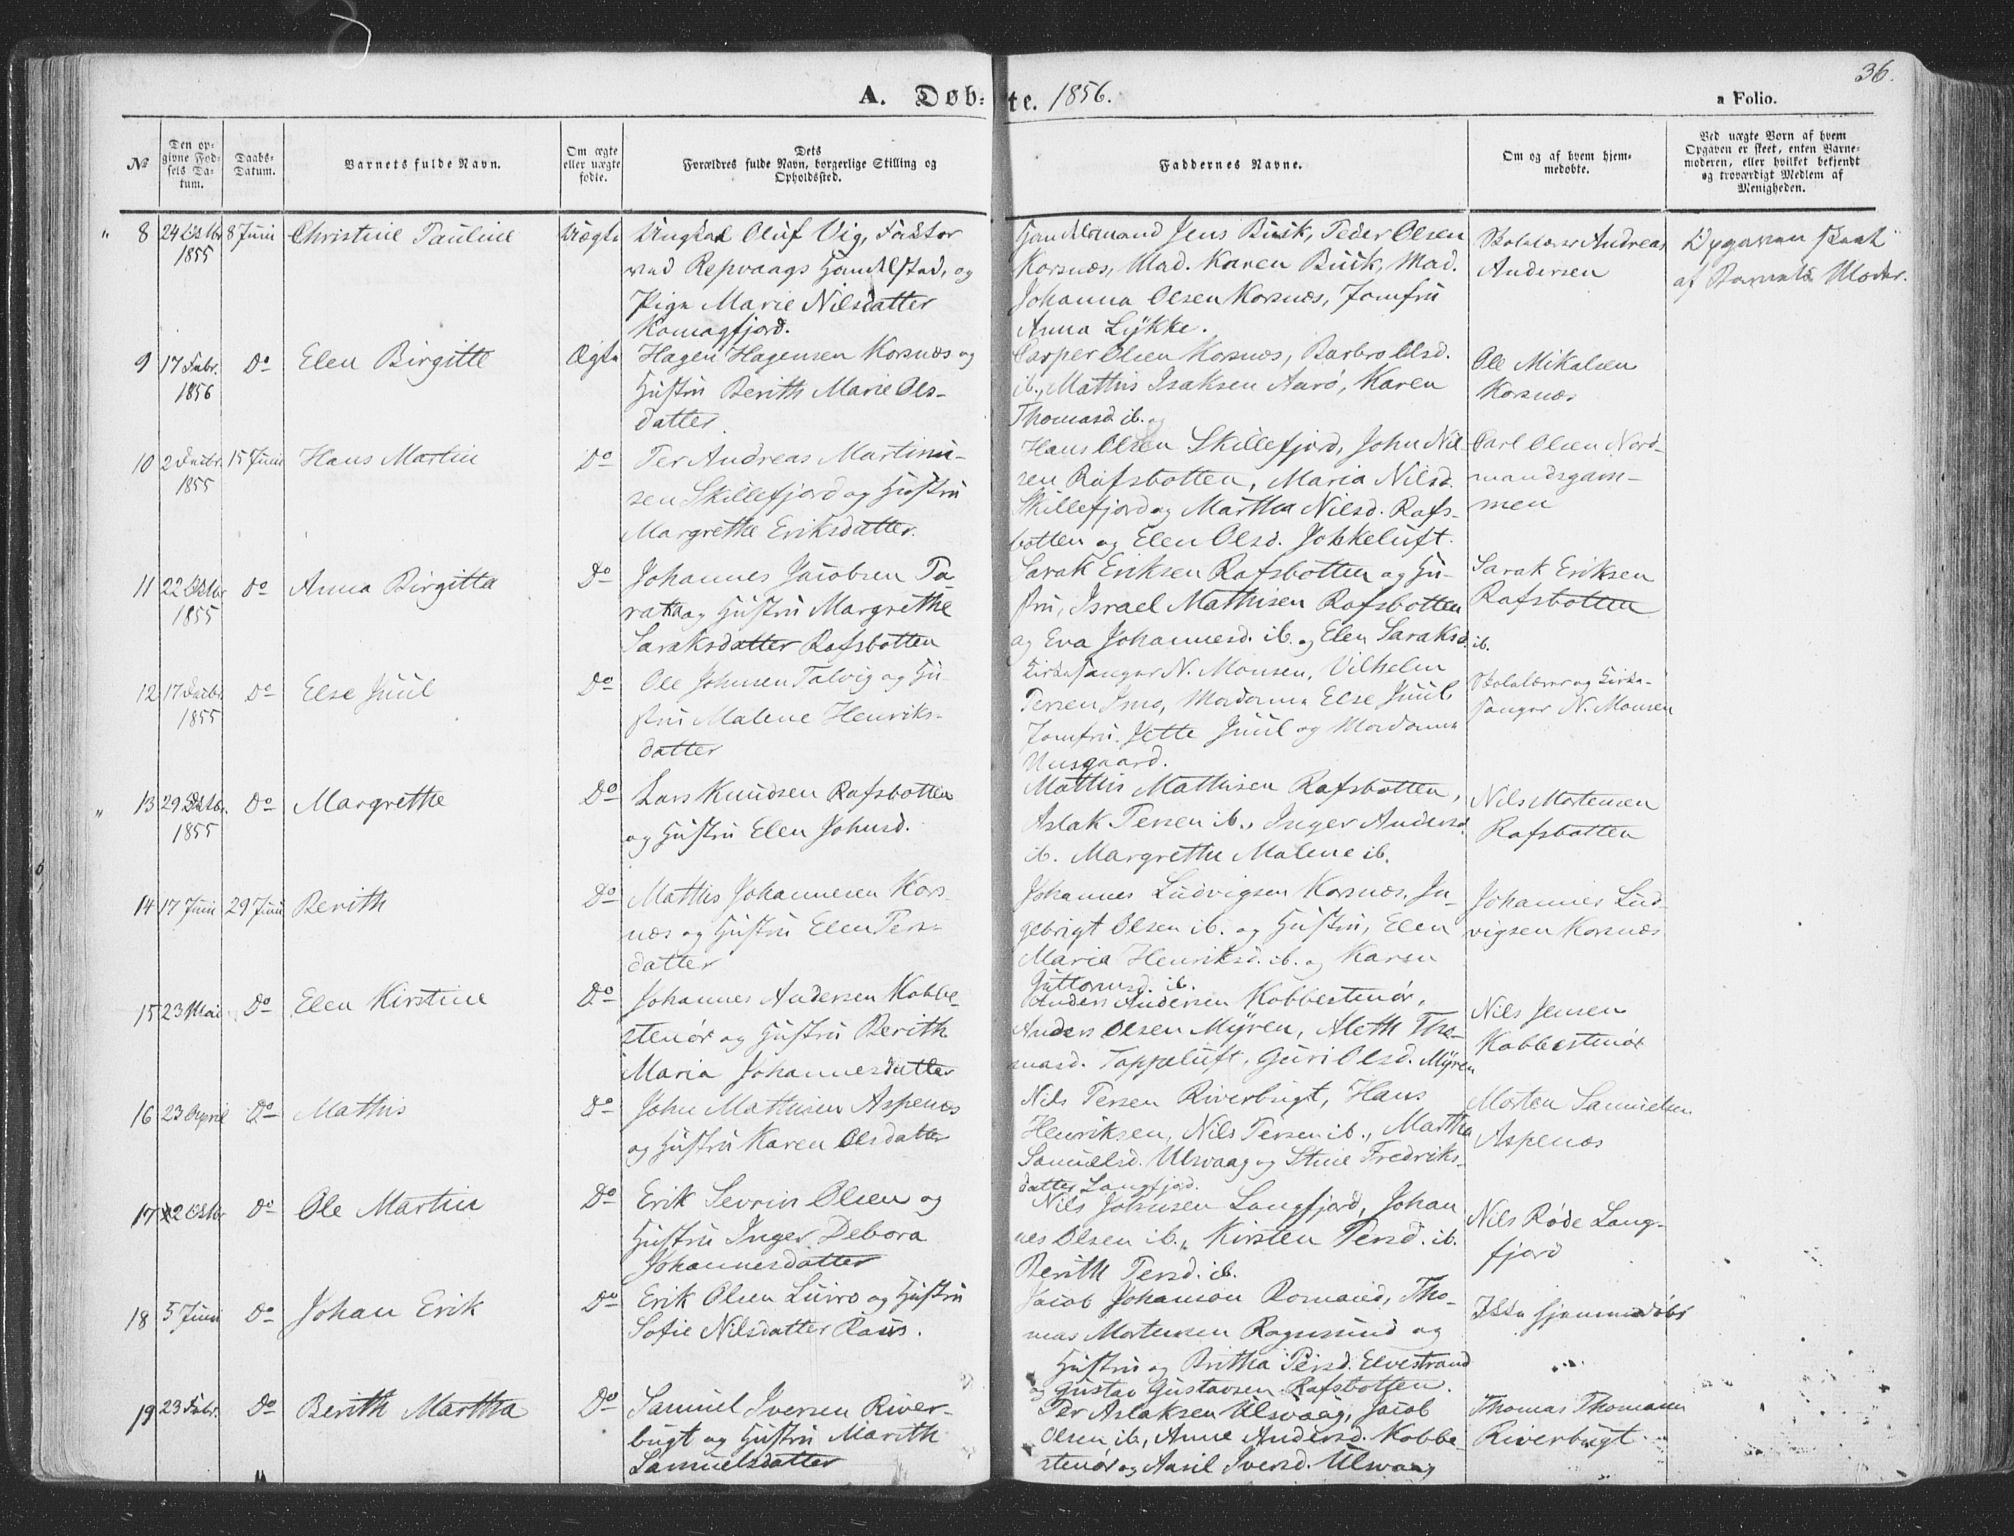 36.
A. Døb- te. 1856.
a Folio.
No
Den op-
givne Fød-
sels Da-
tum.
Daabs-
Datum.
Barnets fulde Navn.
Om ægte
eller uægte
fødte.
Dets
Forældres fulde Navn, borgerlige Stilling og
Opholdssted.
Faddernes Navne.
Om og af hvem hjem-
medøbte.
Ved uægte Børn af hvem
Opgaven er skeet, enten Barne-
moderen, eller hvilket bekjendt
og troværdigt Medlem af
Menigheden.
8 24 Octbr 1855
8 Juni
Christine Pauline
Uægte
Ungkarl Oluf Vig, Factor
ved Repvaags Handelsted, og
Pige Marie Nilsdatter
Komagfjord.
Handelsmand Jens Buck, Peder Olsen
Korsnæs, Mad. Karen Buck, Mad.
Johanna Olsen Korsnæs, Jomfru
Anna Lykke.
Skolelærer Andreas
Andersen
Opgaven skeet
af Barnets Moder.
9 17 Febr. 1856
Do
Elen Birgitte
Ægte
Hagen Hagensen Korsnæs og
Hustru Berith Marie Ols-
datter.
Casper Olsen Korsnæs, Barbro Olsd.
ib., Mathis Isaksen Aarø, Karen
Thomasd. ib.
Ole Mikalsen
Korsnæs
10 2 Decbr. 1855
15 Juni
Hans Martin
Do
Per Andreas Martinu-
sen Skillefjord og Hustru
Margrethe Eriksdatter.
Hans Olsen Skillefjord, John Nil-
sen Rafsbotten, Maria Nilsd.
Skillefjord og Martha Nilsd. Rafs-
botten og Elen Olsd. Jokkeluft.
Carl Olsen Nord-
mandsgam-
men
11 22 Octbr 1855
Do
Anna Birgitta
Do
Johannes Jacobsen
og Hustru Margrethe
Saraksdatter Rafsbotten
Sarak Eriksen Rafsbotten og Hu-
stru, Israel Mathisen Rafsbotten
og Eva Johannesd. ib. og Elen Saraksd. ib.
Sarak Eriksen
Rafsbotten
12 17 Decbr. 1855
Do
Else Juul
Do
Ole Johnsen Talvig og Hu-
stru Malene Henriks-
datter
Kirkesanger N. Monsen, Vilhelm
Persen Jmo, Madame Else Juul,
Jomfru Jette Juul og Madame
Nusgaard.
Skolelærer og Kirke-
sanger N. Monsen
13 29 Octbr. 1855
Do
Margrethe
Do
Lars Knudsen Rafsbotten
og Hustru Elen Johnsd.
Mathis Mathisen Rafsbotten,
Aslak Persen ib., Inger Andersd.
ib. Margrethe Malene ib.
Nils Mortensen
Rafsbotten
14 17 Juni
29 Juni
Berith
Do
Mathis Johannesen Kors-
næs og Hustru Elen Pers-
datter
Johannes Ludvigsen Korsnæs, In-
gebrigt Olsen ib. og Hustru, Elen
Maria Henriksd. ib. og Karen
Guttormsd. ib.
Johannes Lud-
vigsen Korsnæs
15 23 Mai
Do
Elen Kirstine
Do
Johannes Andersen Kobbe-
stenør og Hustru Berith
Maria Johannesdatter
Anders Andersen Kobbestenør,
Anders Olsen Myren, Aleth Tho-
masd. Toppeluft, Guri Olsd. Myren
Nils Jensen
Kobbestenør
16 23 April
Do
Mathis
Do
John Mathisen Aspenæs
og Hustru Karen Olsdatter
Nils Persen Riverbugt, Hans
Henriksen, Nils Persen ib., Martha
Samuelsd. Ulsvaag og Stine Fredriks-
datter Langfjord.
Morten Samuelsen
Aspenæs
17 2 Octbr
Do
Ole Martin
Do
Erik Sevrin Olsen og
Hustru Inger Debora
Johannesdatter
Nils Johnsen Langfjord, Johan
nes Olsen ib., Kirsten Persd. ib.
Berith Persd. ib.
Nils Røde Lang-
fjord
18 5 Juni
Do
Johan Erik
Do
Erik Olsen og Hustru
Sofie Nilsdatter
Jacob Johanson, Tho-
mas Mortensen Rognsund og
Hustru og Britha Persd. Elvestrand
og Gustav Gustavsen Rafsbotten.
Ikke hjemmedøbt
19 23 Febr.
Do
Berith Martha
Do
Samuel Iversen River-
bugt og Hustru Marith
Samuelsdatter
Per Aslaksen Ulsvaag, Jacob
Olsen ib., Anne Andersd. Kobbe-
stenør og Aasil Iversd. Ulsvaag
Thomas Thomasen
Riverbugt